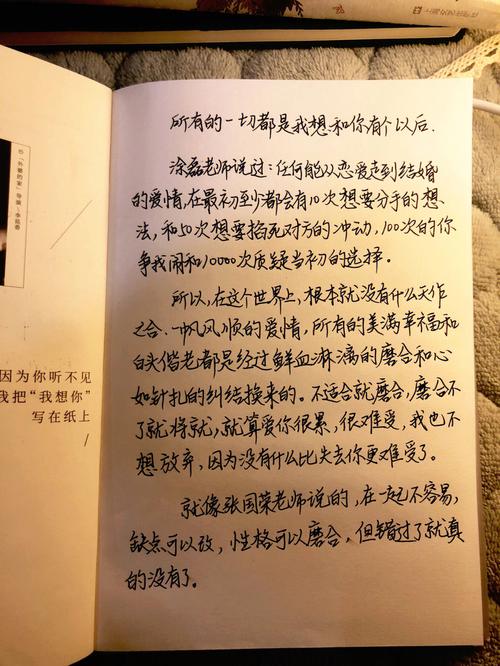 所有的一切都是我想和你有个以后.
涂磊老师说过:任何能从恋爱走到结婚
的爱情,在最初至少都会有10次想要分手的想
法,和50次想要掐死对方的冲动,100次的你
争我闹和10000次质疑当初的选择。
所以,在这个世界上,根本就没有什么天作
之合.一帆风顺的爱情,所有的美满幸福和
白头偕老都是经过鲜血淋漓的磨合和心
如针扎的纠结换来的。不适合就磨合,磨合不
了就将就,就算爱你很累,很难受,我也不
想放弃,因为没有什么比失去你更难受了。
就像张国荣老师说的,在一起不容易,
缺点可以改,性格可以磨合,但错过了就真
的没有了。
因为你听不见
我把“我想你”
写在纸上